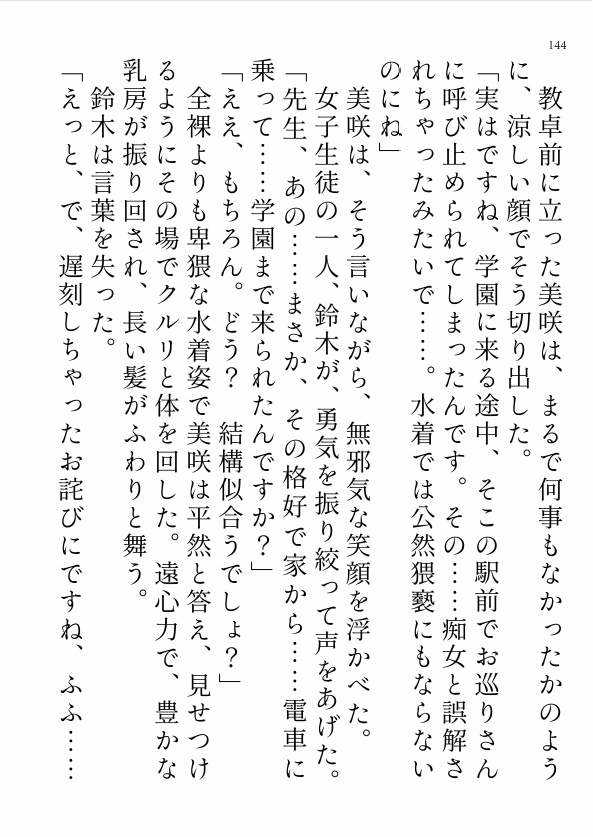 144
教卓前に立った美咲は、まるで何事もなかったかのよう
に、涼しい顔でそう切り出した。
「実はですね、学園に来る途中、そこの駅前でお巡りさん
に呼び止められてしまったんです。その……痴女と誤解さ
れちゃったみたいで……。水着では公然猥褻にもならない
のにね」
美咲は、そう言いながら、無邪気な笑顔を浮かべた。
女子生徒の一人、鈴木が、勇気を振り絞って声をあげた。
「先生、あの……まさか、その格好で家から……電車に
乗って……学園まで来られたんですか？」
「ええ、もちろん。どう？　結構似合うでしょ？」
全裸よりも卑猥な水着姿で美咲は平然と答え、見せつけ
るようにその場でクルリと体を回した。遠心力で、豊かな
乳房が振り回され、長い髪がふわりと舞う。
鈴木は言葉を失った。
「えっと、で、遅刻しちゃったお詫びにですね、ふふ……